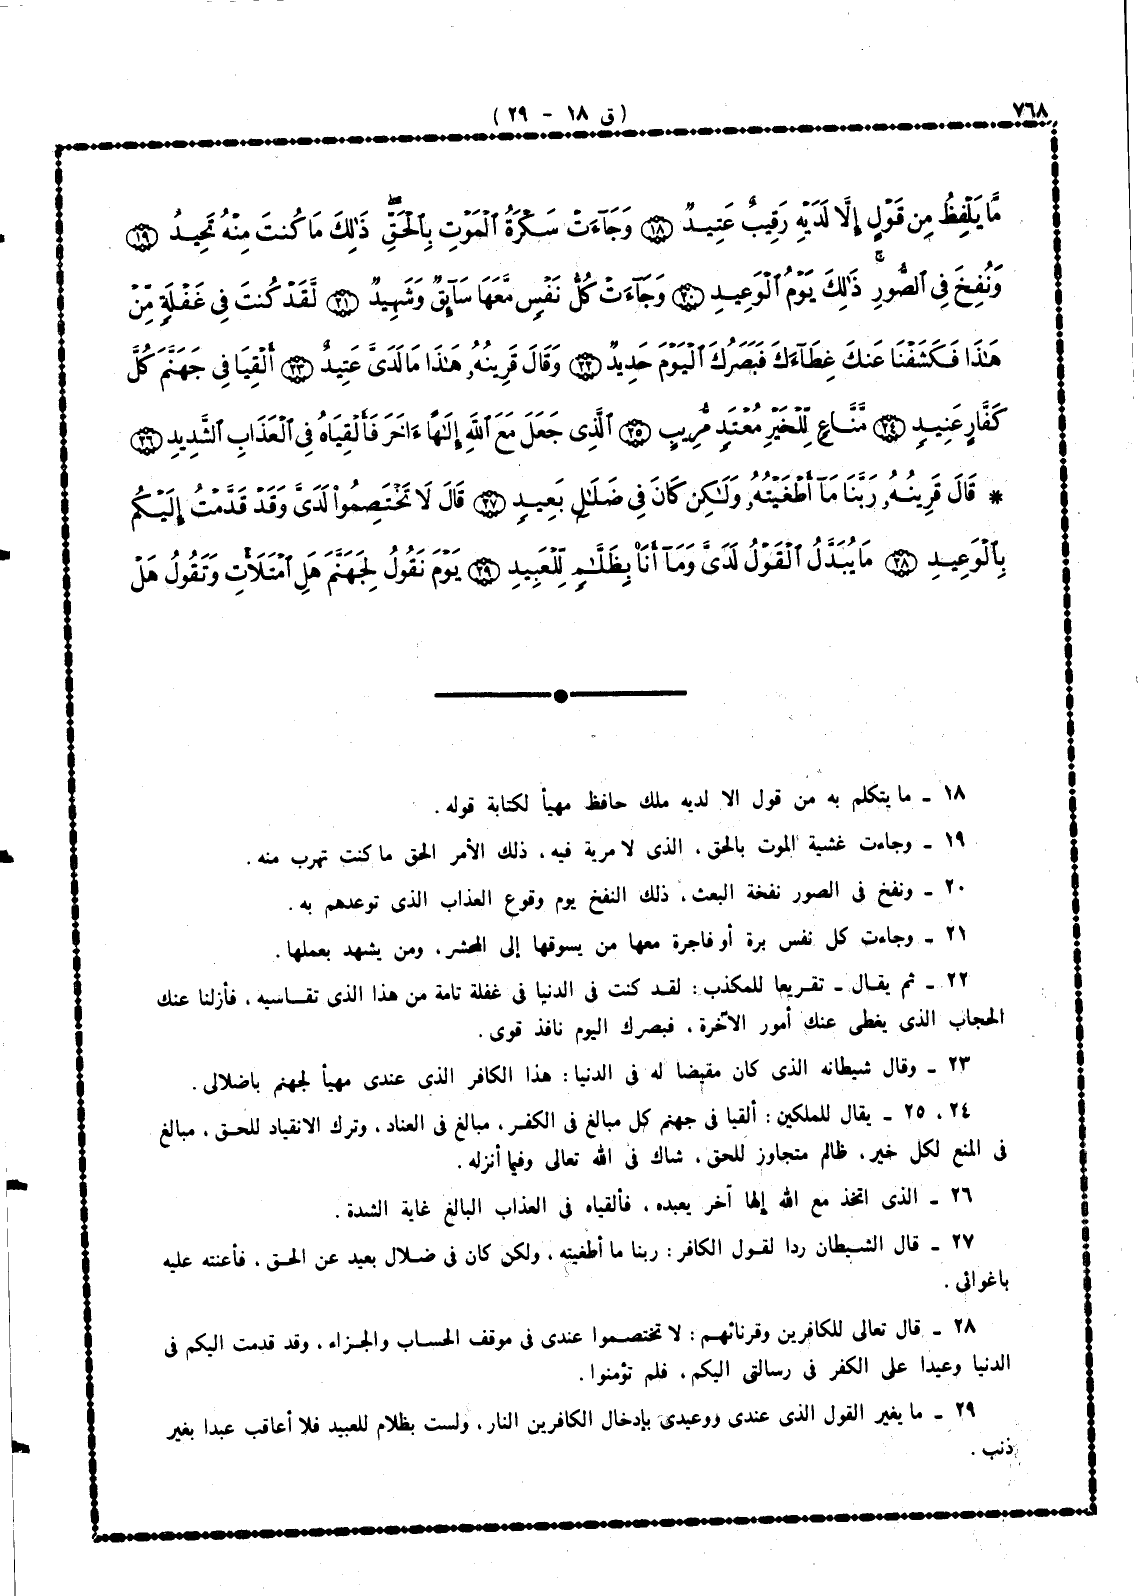 ٧٦٨
( ق ١٨ - ٢٩ )
مَّا يَلْفِظُ مِن قَوْلٍ إِلَّا لَدَيْهِ رَقِيبٌ عَتِيدٌ ﴿١٨﴾ وَجَآءَتْ سَكْرَةُ ٱلْمَوْتِ بِٱلْحَقِّۖ ذَٰلِكَ مَا كُنتَ مِنْهُ تَحِيدُ ﴿١٩﴾
وَنُفِخَ فِى ٱلصُّورِۚ ذَٰلِكَ يَوْمُ ٱلْوَعِيدِ ﴿٢٠﴾ وَجَآءَتْ كُلُّ نَفْسٍ مَّعَهَا سَآئِقٌ وَشَهِيدٌ ﴿٢١﴾ لَّقَدْ كُنتَ فِى غَفْلَةٍ مِّنْ
هَٰذَا فَكَشَفْنَا عَنكَ غِطَآءَكَ فَبَصَرُكَ ٱلْيَوْمَ حَدِيدٌ ﴿٢٢﴾ وَقَالَ قَرِينُهُۥ هَٰذَا مَا لَدَىَّ عَتِيدٌ ﴿٢٣﴾ أَلْقِيَا فِى جَهَنَّمَ كُلَّ
كَفَّارٍ عَنِيدٍ ﴿٢٤﴾ مَّنَّاعٍ لِّلْخَيْرِ مُعْتَدٍ مُّرِيبٍ ﴿٢٥﴾ ٱلَّذِى جَعَلَ مَعَ ٱللَّهِ إِلَٰهًا ءَاخَرَ فَأَلْقِيَاهُ فِى ٱلْعَذَابِ ٱلشَّدِيدِ ﴿٢٦﴾
* قَالَ قَرِينُهُۥ رَبَّنَا مَآ أَطْغَيْتُهُۥ وَلَٰكِن كَانَ فِى ضَلَٰلٍ بَعِيدٍ ﴿٢٧﴾ قَالَ لَا تَخْتَصِمُوا۟ لَدَىَّ وَقَدْ قَدَّمْتُ إِلَيْكُم
بِٱلْوَعِيدِ ﴿٢٨﴾ مَا يُبَدَّلُ ٱلْقَوْلُ لَدَىَّ وَمَآ أَنَا۠ بِظَلَّٰمٍ لِّلْعَبِيدِ ﴿٢٩﴾ يَوْمَ نَقُولُ لِجَهَنَّمَ هَلِ ٱمْتَلَأْتِ وَتَقُولُ هَلْ
١٨ ـ ما يتكلم به من قول الا لديه ملك حافظ مهيأ لكتابة قوله .
١٩ ـ وجاءت غشية الموت بالحق ، الذى لا مرية فيه ، ذلك الأمر الحق ما كنت تهرب منه .
٢٠ ـ ونفخ فى الصور نفخة البعث ، ذلك النفخ يوم وقوع العذاب الذى توعدهم به .
٢١ ـ وجاءت كل نفس برة أو فاجرة معها من يسوقها إلى المحشر ، ومن يشهد بعملها .
٢٢ ـ ثم يقال ـ تقريعا للمكذب : لقد كنت فى الدنيا فى غفلة تامة من هذا الذى تقاسيه ، فأزلنا عنك
الحجاب الذى يغطى عنك أمور الآخرة ، فبصرك اليوم نافذ قوى .
٢٣ ـ وقال شيطانه الذى كان مقيضا له فى الدنيا : هذا الكافر الذى عندى مهيأ لجهنم باضلالى .
٢٤ ، ٢٥ ـ يقال للملكين : ألقيا فى جهنم كل مبالغ فى الكفر ، مبالغ فى العناد ، وترك الانقياد للحق ، مبالغ
فى المنع لكل خير ، ظالم متجاوز للحق ، شاك فى الله تعالى وفيما أنزله .
٢٦ ـ الذى اتخذ مع الله إلها آخر يعبده ، فألقياه فى العذاب البالغ غاية الشدة .
٢٧ ـ قال الشيطان ردا لقول الكافر : ربنا ما أطغيته ، ولكن كان فى ضلال بعيد عن الحق ، فأعنته عليه
باغوائى .
٢٨ ـ قال تعالى للكافرين وقرنائهم : لا تختصموا عندى فى موقف الحساب والجزاء ، وقد قدمت اليكم فى
الدنيا وعيدا على الكفر فى رسالتى اليكم ، فلم تؤمنوا .
٢٩ ـ ما يغير القول الذى عندى ووعيدى بإدخال الكافرين النار ، ولست بظلام للعبيد فلا أعاقب عبدا بغير
ذنب .